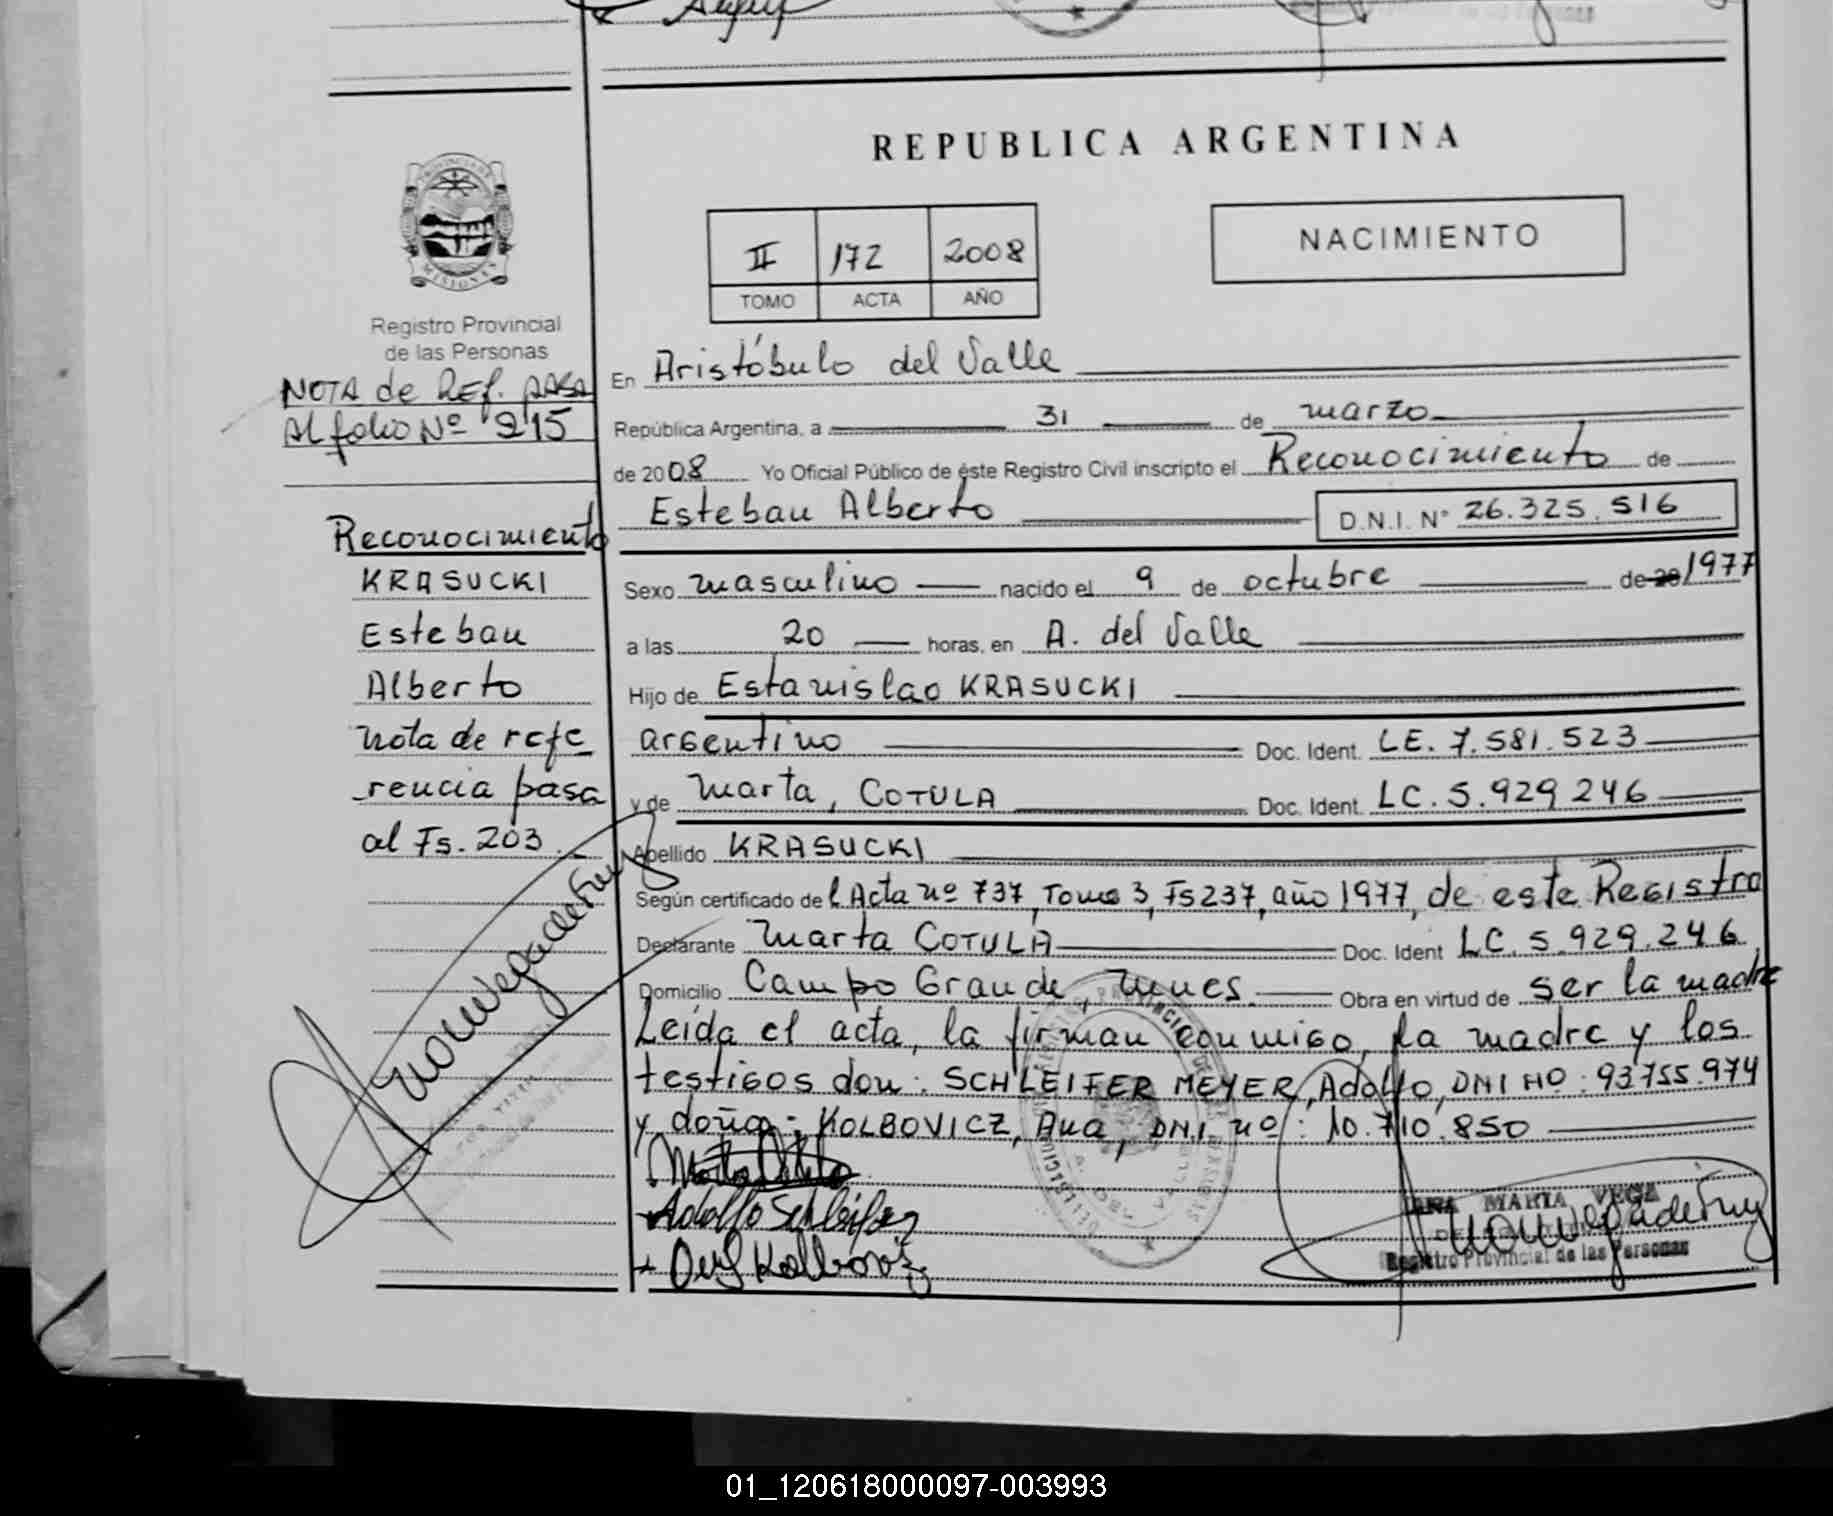 REPUBLICA ARGENTINA
PROVINCIA DE
MISIONES
Registro Provincial
de las Personas
NOTA de REF. PASA
Al folio Nº 215
Reconocimiento
KRASUCKI
Esteban
Alberto
Nota de refe
rencia pasa
al Fs. 203
II 172 2008
TOMO ACTA AÑO
NACIMIENTO
En Aristóbulo del Valle
República Argentina, a 31 de marzo
de 2008 Yo Oficial Público de éste Registro Civil inscripto el Reconocimiento de
Esteban Alberto D.N.I. Nº 26.325.516
Sexo masculino nacido el 9 de octubre de 20 1977
a las 20 horas, en A. del Valle
Hijo de Estanislao KRASUCKI
argentino Doc. Ident. LE. 7.581.523
y de Marta, COTULA Doc. Ident. LC. 5.929 246
Apellido KRASUCKI
Según certificado de l Acta nº 737, Tomo 3, Fs 237, año 1977, de este Registro
Declarante Marta COTULA Doc. Ident LC. 5.929.246
Domicilio Campo Grande, Mnes. Obra en virtud de ser la madre
Leída el acta, la firman conmigo, la madre y los
testigos don: SCHLEIFER MEYER, Adolfo, DNI NO: 93755.974
y doña: KOLBOVICZ, Ana, DNI nº: 10.710.850
Adolfo Schleifer
ANA MARIA VEGA
Registro Provincial de las Personas
01_120618000097-003993